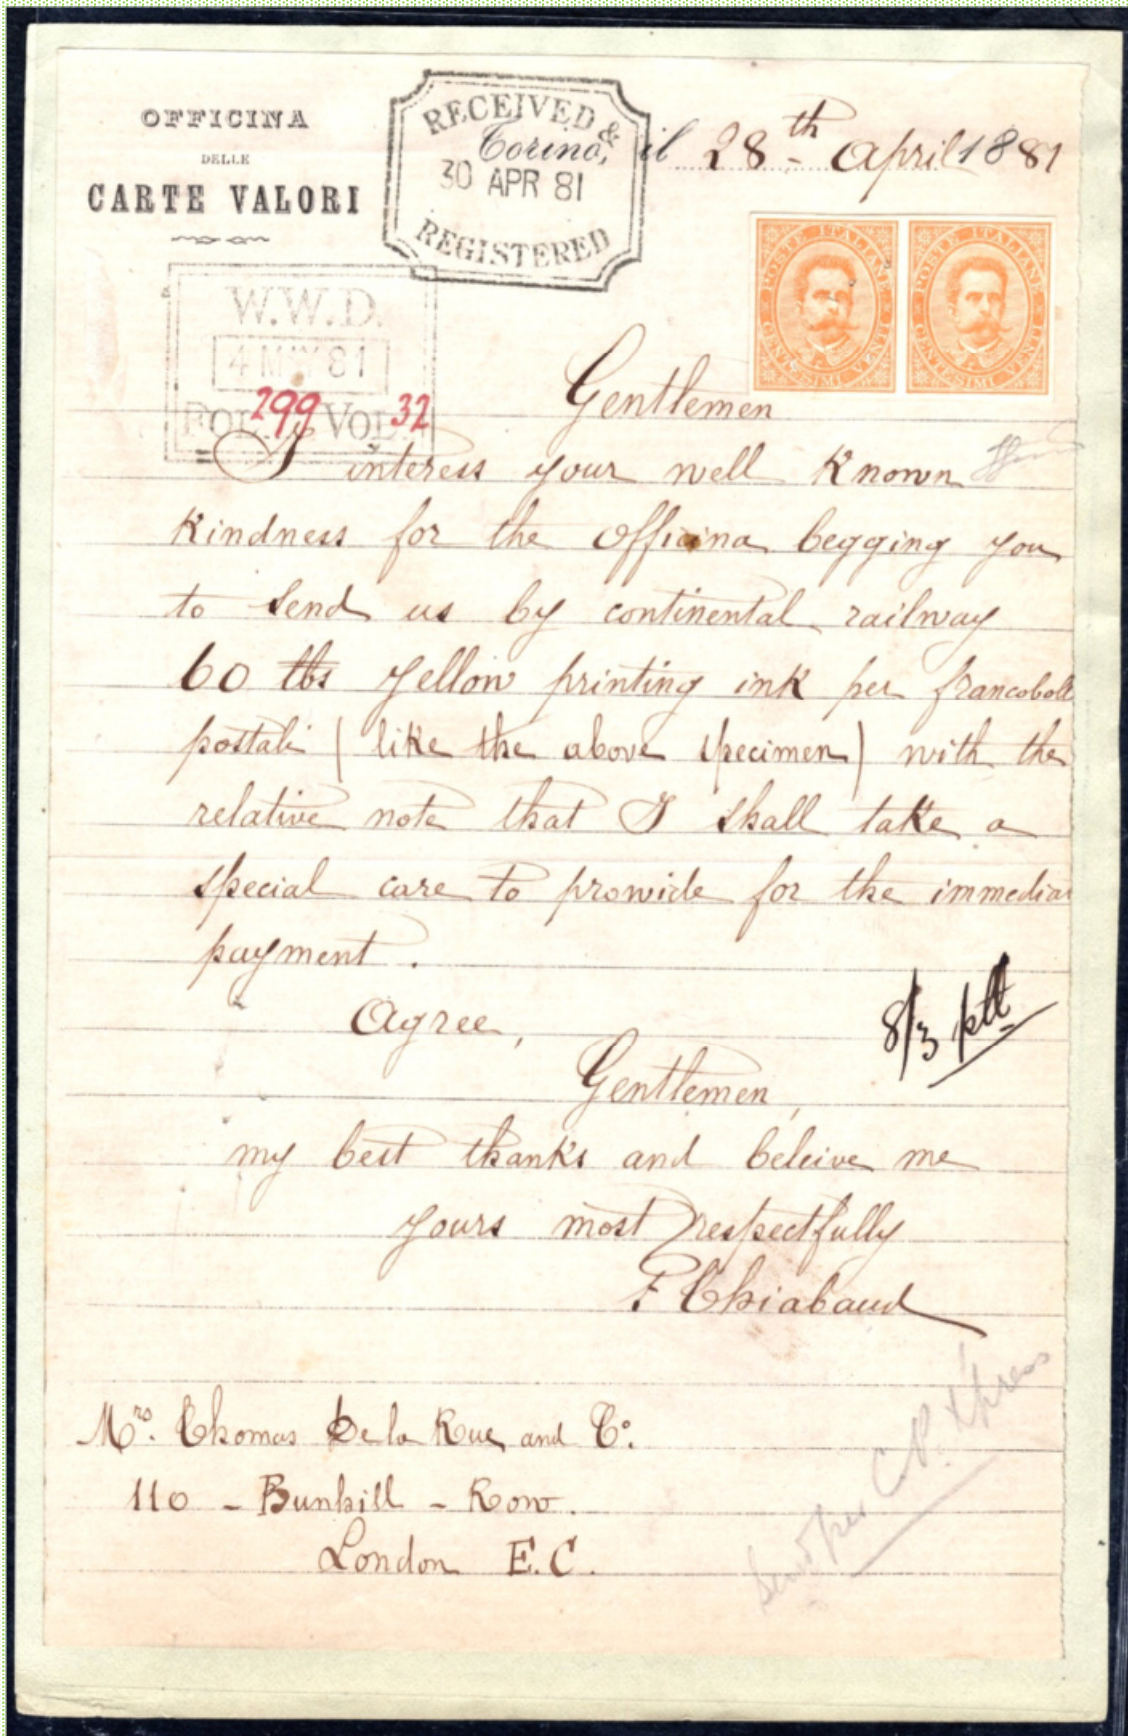 OFFICINA
DELLE
CARTE VALORI
RECEIVED &
Torino, il 28th April 1881
30 APR 81
REGISTERED
POSTE ITALIANE
CENTESIMI VENTI
POSTE ITALIANE
CENTESIMI VENTI
W.W.D.
4 MAY 81
FOL. 299 VOL. 32
Gentlemen
I interess your well known
kindness for the Officina begging you
to send us by continental railway
60 lbs yellow printing ink per francoboll
postali (like the above specimen) with the
relative note that I shall take a
special care to prowide for the immedia
payment.
Agree,
8/3 ptt
Gentlemen,
my best thanks and beleive me
yours most respectfully
F Chiabaud
Mrs. Thomas De la Rue and Co.
110 - Bunhill - Row.
London E.C.
Send per C.P. Xpress